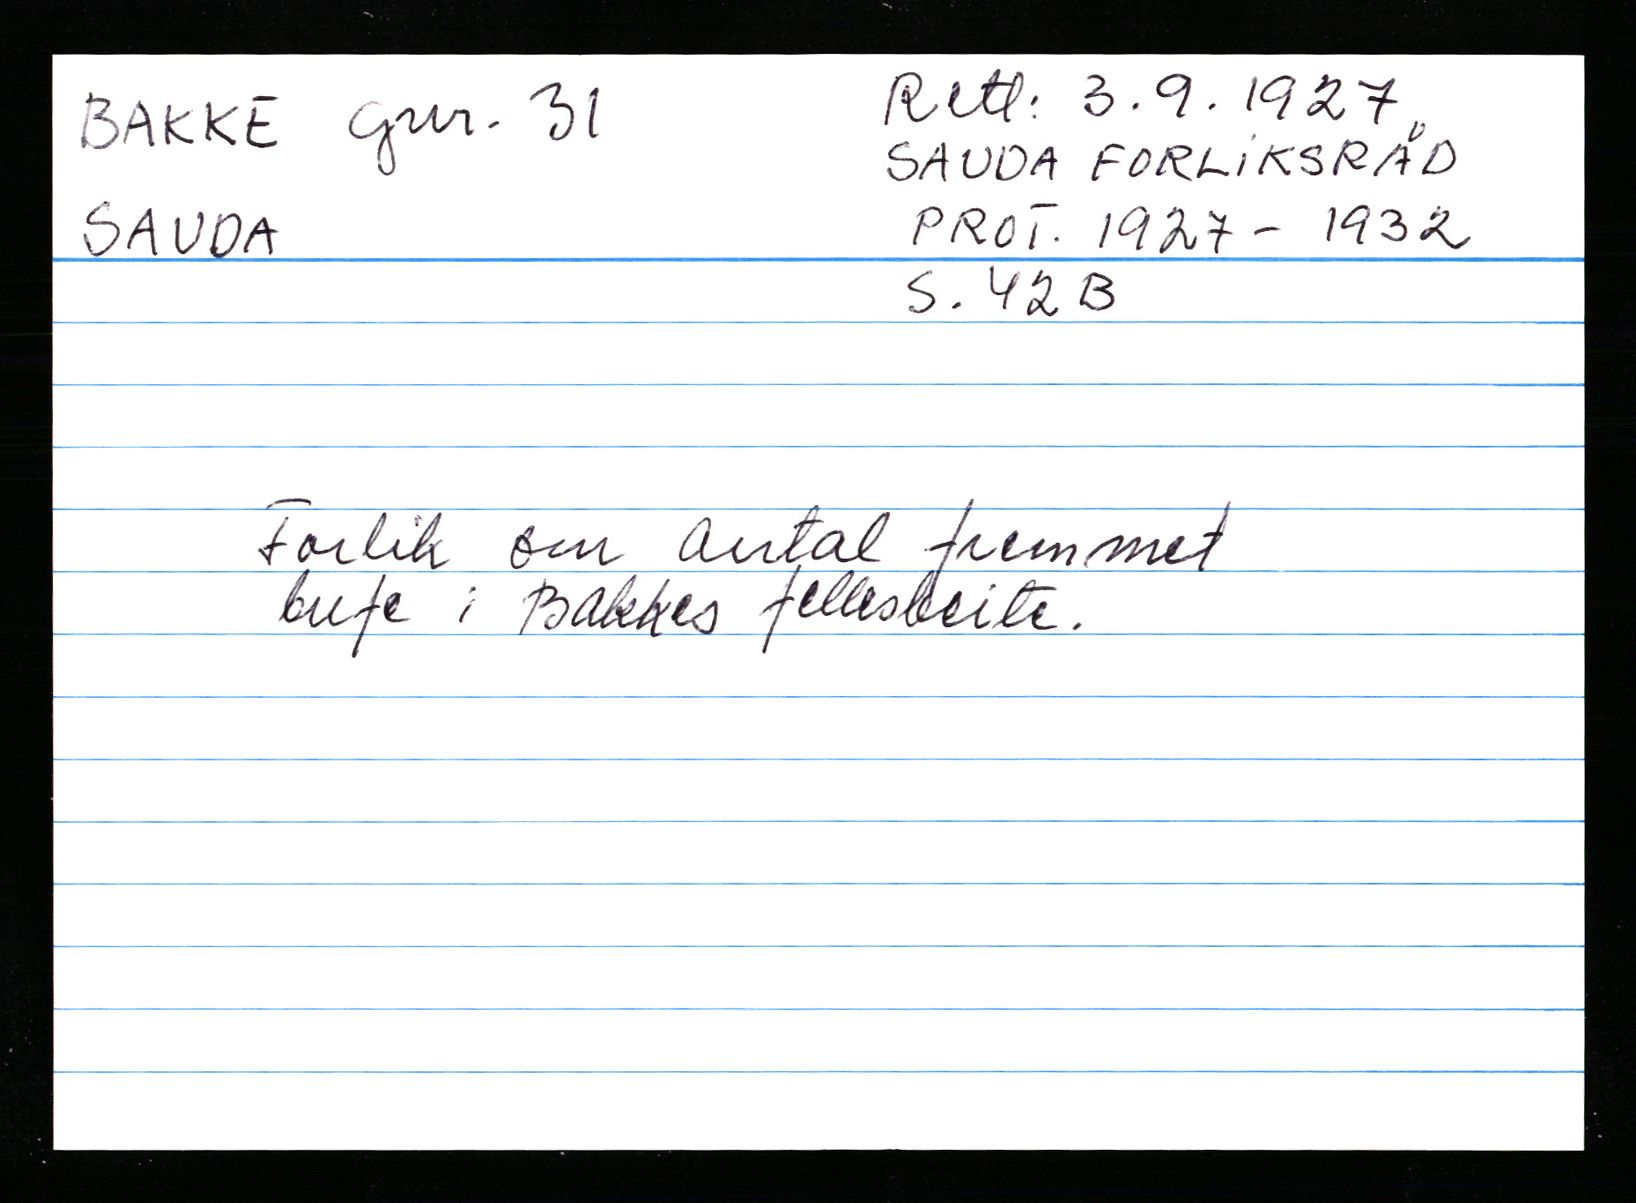 BAKKE gnr. 31
SAUDA
Retl: 3.9.1927
SAUDA FORLIKSRÅD
PROT. 1927 - 1932
S. 42 B
Forlik om antal fremmet
bufe i Bakkes fellesbeite.